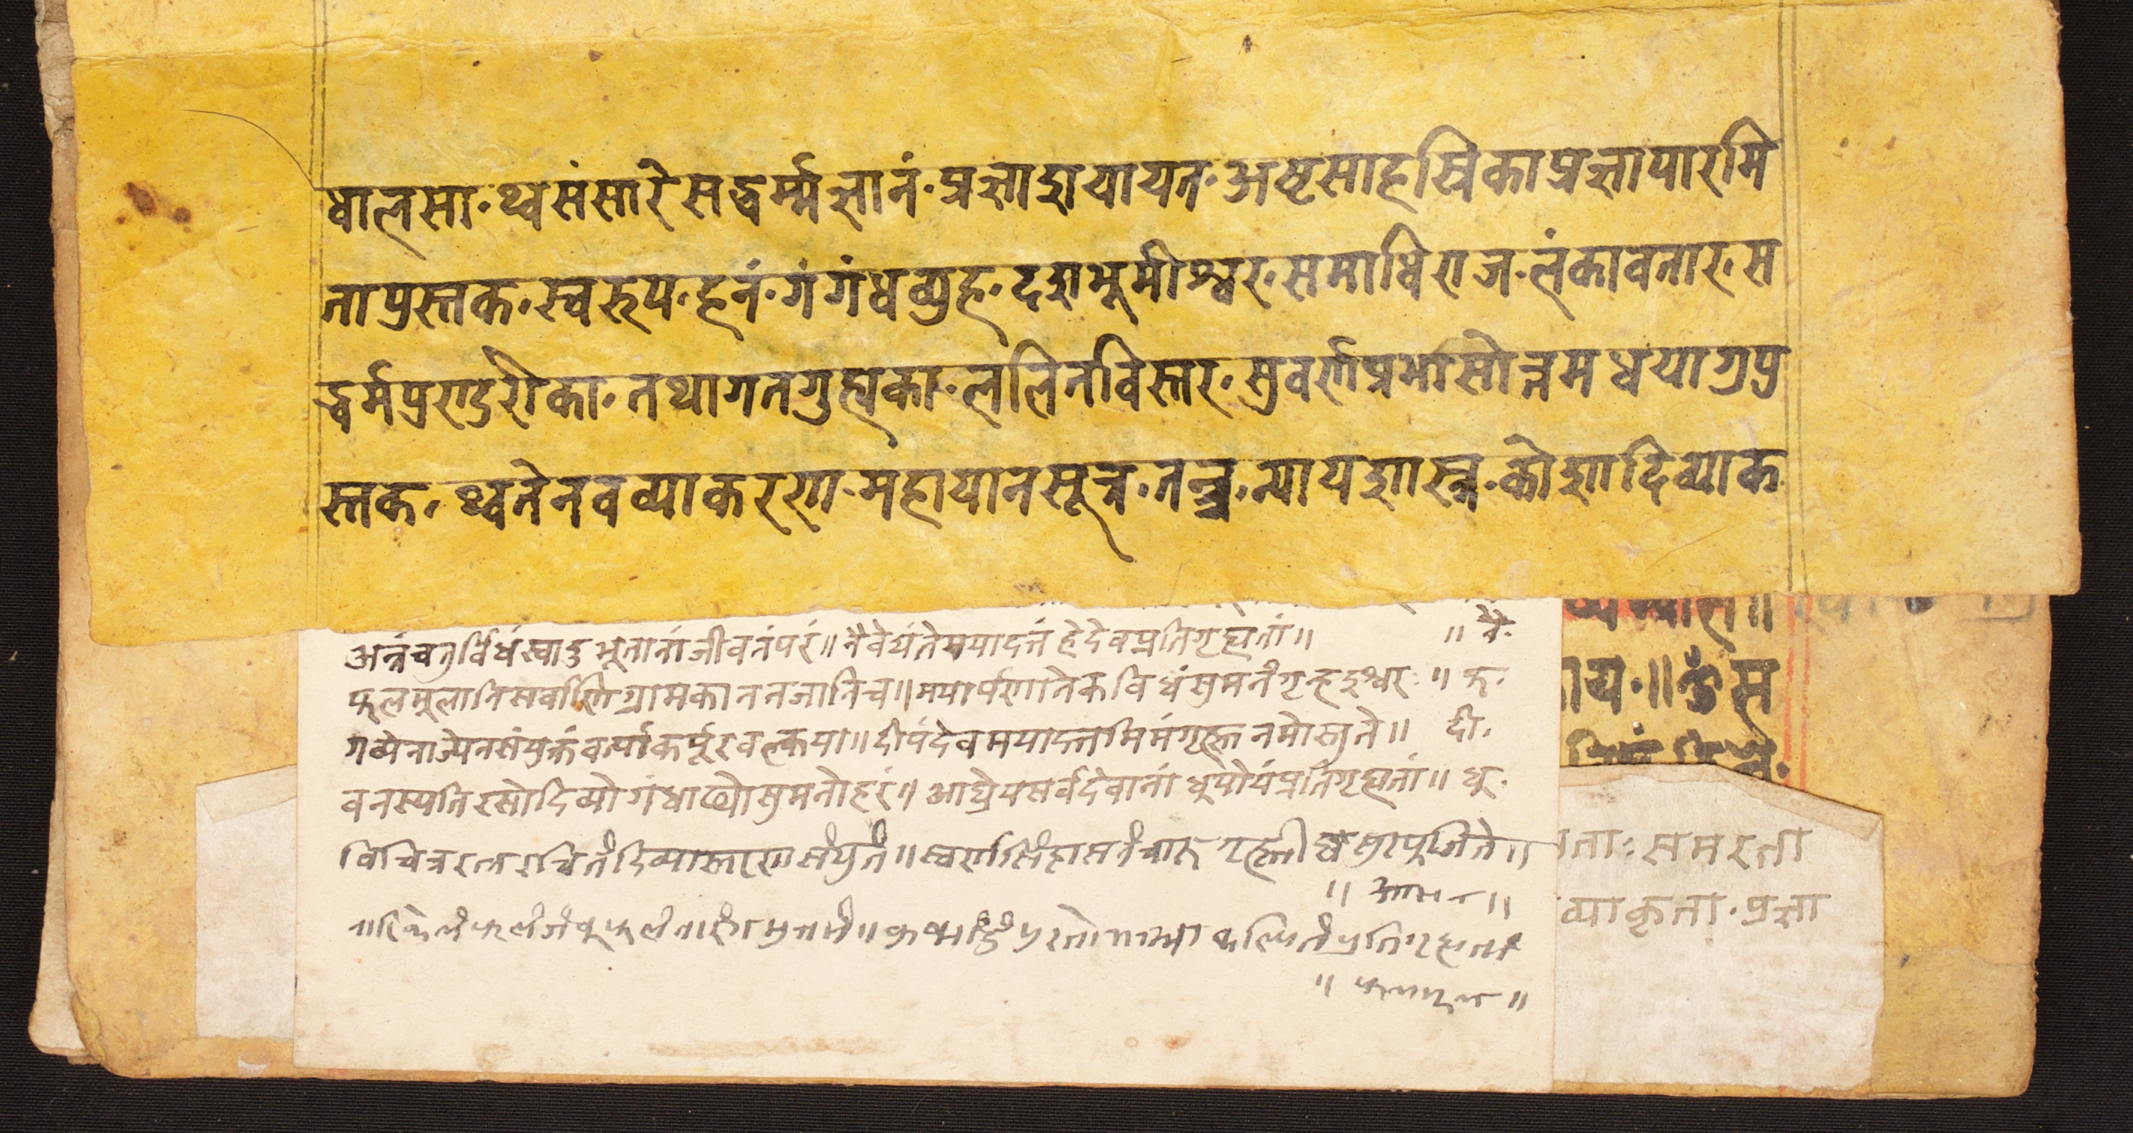 धालसा॰ थ्वसंसारे सद्धर्म्मज्ञानं॰ प्रज्ञाज्ञायायत॰ अष्टसाहस्रिकाप्रज्ञापारमि
ताप्रस्तक॰ स्वरुप॰ हनं॰ गंगंधव्युह॰ दशभुमीश्वर॰ समाधिराज॰ लंकावतार॰ स
द्धर्मपुराडरीका॰ तथागतगुह्यका॰ ललितविस्तर॰ सुवर्णप्रभासोत्तम धयागुपु
स्तक॰ थ्वतेनवव्याकरण॰ महायानसूत्र॰ तन्त्र॰ न्यायशास्त्र॰ कोशादिव्याक
अन्नंचतुर्विधंस्वादुभूतानांजीवनंपरं॥ नैवेद्यंतेमयादत्तं हेदेवप्रतिगृह्यतां॥ ॥ नै॰
फलमुलानिसर्वाणिग्रामकाननजानिच॥ मयार्पणानेकविधंसुमनंगृन्हइश्वर ॥ फ॰
गव्येनाज्येनसंयुक्तंवर्त्याकर्पूरवल्कया॥ दीपंदेवमयादत्तमिमंगृह्ण नमोस्तुते॥ दी॰
वनस्पतिरसोदिव्यो गंधाढ्योसुमनोहरं॥ आघ्रेयसर्वदेवानां धुपोयंप्रतिगृह्यतां॥ धु॰
विचित्ररत्नरचितं दिव्यास्तरणसंयुतं॥ स्वर्णसिंहासनंचारु गृह्ण सुरपुजिते॥
॥ आसन ॥
नारिकेलंफलंजंबूफलंनारंगमुत्तमं॥ कुष्माण्डं पुरतो कल्पितंप्रतिगृह्यतां
य॰॥ ॐ स
ताः समरता
व्याकृता॰ प्रज्ञा